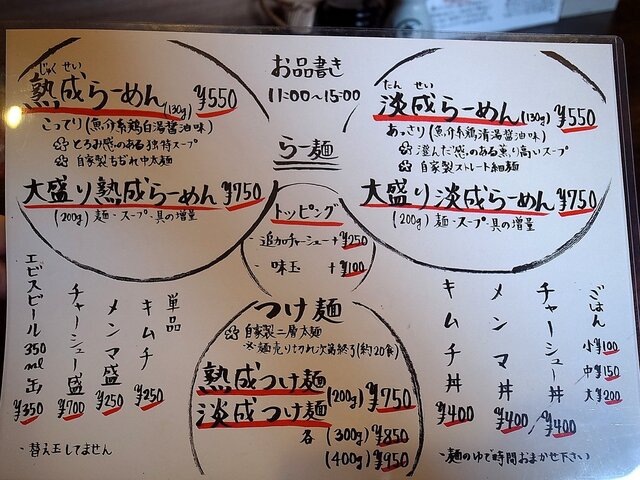 お品書き
11:00〜15:00
らー麺
じゅくせい
熟成らーめん(130g) ¥550
こってり(魚介系鶏白湯醤油味)
とろみ感のある独特スープ
自家製もぢれ中太麺
大盛り熟成らーめん ¥750
(200g) 麺・スープ・具の増量
たんせい
淡成らーめん(130g) ¥550
あっさり(魚介系鶏清湯醤油味)
澄んだ感のある薫り高いスープ
自家製ストレート細麺
大盛り淡成らーめん ¥750
(200g) 麺・スープ・具の増量
トッピング
・追加チャーシュー +¥250
・味玉 +¥100
つけ麺
自家製二層太麺
※麺売り切れ次第終了(約20食)
熟成つけ麺
淡成つけ麺
(200g) ¥750
各 (300g) ¥850
(400g) ¥950
単品
キムチ ¥250
メンマ盛 ¥250
チャーシュー盛 ¥700
エビスビール350ml缶 ¥350
・替え玉してません
ごはん
小 ¥100
中 ¥150
大 ¥200
チャーシュー丼 ¥400
メンマ丼 ¥400
キムチ丼 ¥400
・麺のゆで時間おまかせ下さい